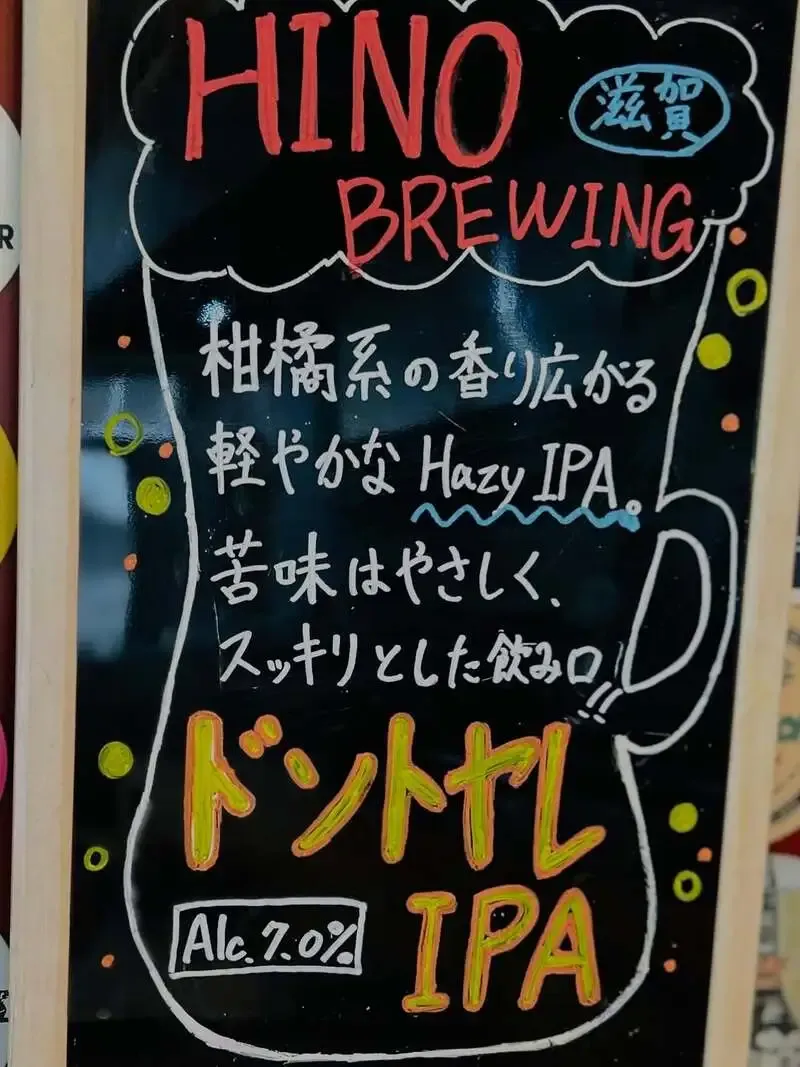 HINO
滋賀
BREWING
柑橘系の香り広がる
軽やかな Hazy IPA。
苦味はやさしく、
スッキリとした飲み口!!
ドントヤレ
IPA
Alc. 7.0%
R